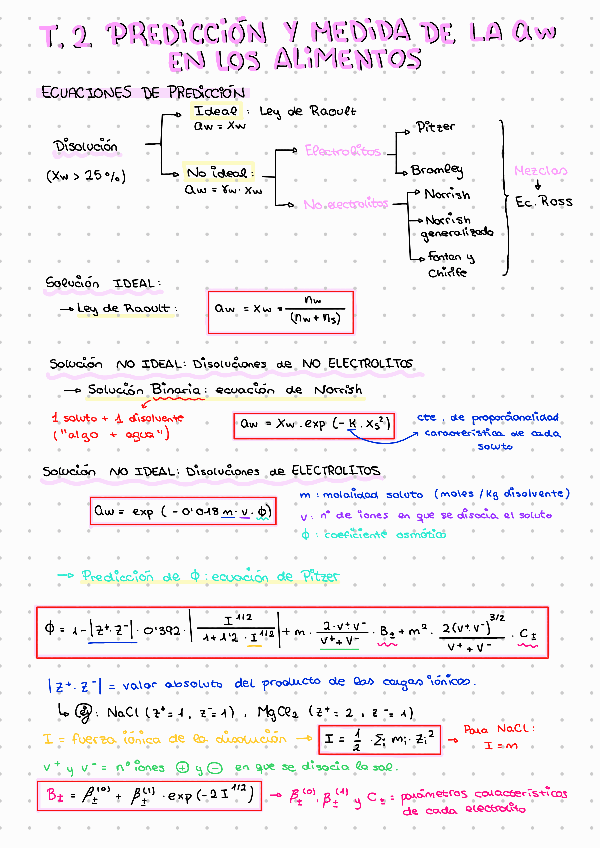 T.2 PREDICCIÓN Y MEDIDA DE LA aw
EN LOS ALIMENTOS
ECUACIONES DE PREDICCIÓN
Disolución
(Xw > 25%)
Ideal: Ley de Raoult
aw = Xw
No ideal:
aw = γw · Xw
Electrolitos
Pitzer
Bromley
No electrolitos
Norrish
Norrish
generalizado
Fontan y
Chirife
Mezclas
↓
Ec. Ross
Solución IDEAL:
→ Ley de Raoult:
aw = Xw = nw / (nw + ns)
Solución NO IDEAL: Disoluciones de NO ELECTROLITOS
→ Solución Binaria: ecuación de Norrish
1 soluto + 1 disolvente
("algo + agua")
aw = Xw · exp (-K · Xs²)
cte. de proporcionalidad
característica de cada
soluto
Solución NO IDEAL: Disoluciones de ELECTROLITOS
aw = exp (-0'018 m · v · ϕ)
m: molalidad soluto (moles/Kg disolvente)
v: nº de iones en que se disocia el soluto
ϕ: coeficiente osmótico
→ Predicción de ϕ: ecuación de Pitzer
ϕ = 1 - |z⁺·z⁻| · 0'392 · | I^1/2 / (1 + 1'2 · I^1/2) | + m · (2·v⁺v⁻ / (v⁺+v⁻)) · B± + m² · (2(v⁺v⁻)^3/2 / (v⁺+v⁻)) · C±
|z⁺·z⁻| = valor absoluto del producto de las cargas iónicas.
↳ Ej: NaCl (z⁺=1, z⁻=1), MgCl₂ (z⁺=2, z⁻=1)
I = fuerza iónica de la disolución → I = 1/2 · Σi mi · zi²
→ Para NaCl:
I = m
v⁺ y v⁻ = nº iones ⊕ y ⊖ en que se disocia la sal.
B± = β±⁽⁰⁾ + β±⁽¹⁾ · exp(-2 I^1/2)
→ β±⁽⁰⁾, β±⁽¹⁾ y C± = parámetros característicos
de cada electrolito